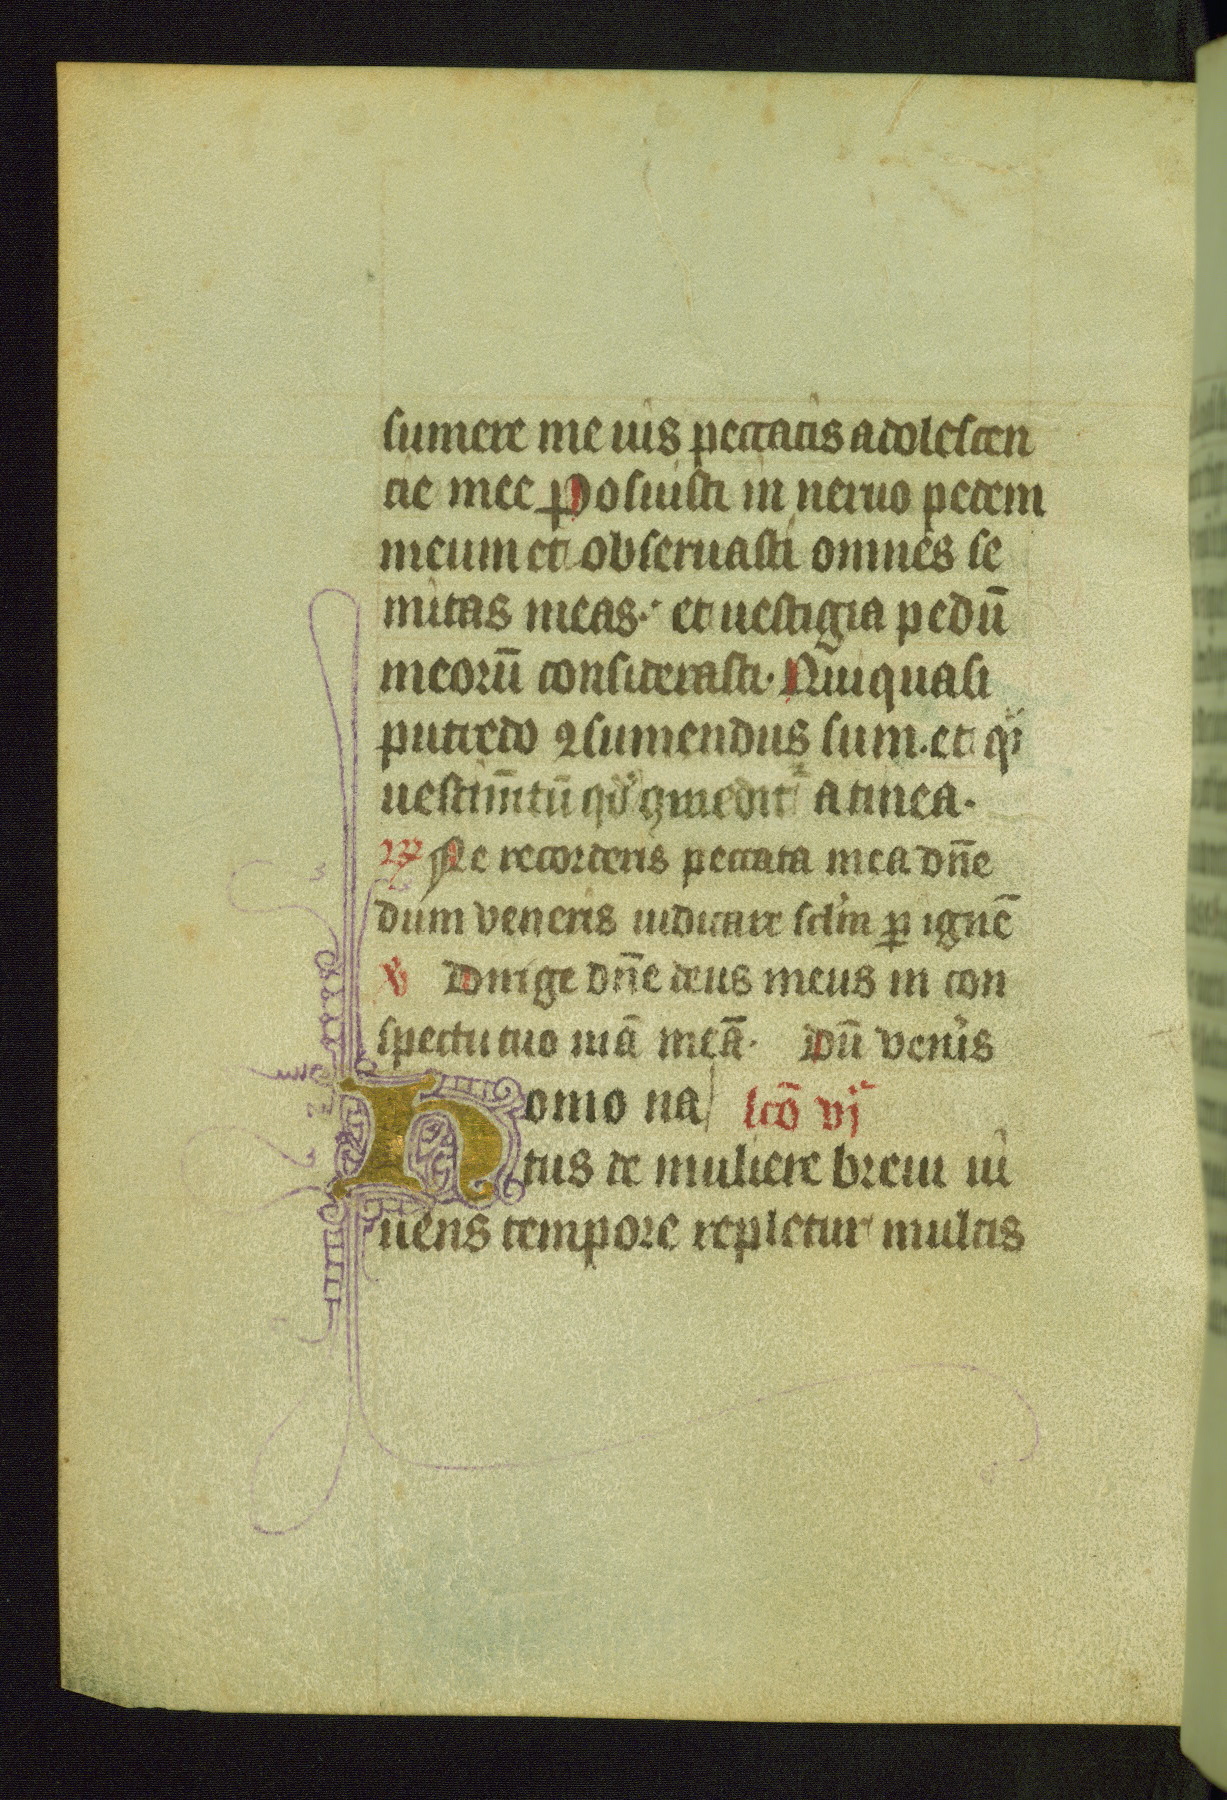 sumere me uis peccatis adolescen
tie mee Posuisti in neruo pedem
meum et obseruasti omnes se
mitas meas. et uestigia pedū
meorū considerasti. Qui quasi
putredo ꝯsumendus sum. et qͣi
uestim̄tū qd̓ ꝯmedit᷑ a tinea.
℟ Ne recorderis peccata mea dn̄e
dum veneris iudicare sclm̄ ꝑ ignē
℣ Dirige dn̄e deus meus in con
spectu tuo uiā meā. Dū venis
Homo na lcō vj
tus de muliere breui ui
uens tempore repletur multis